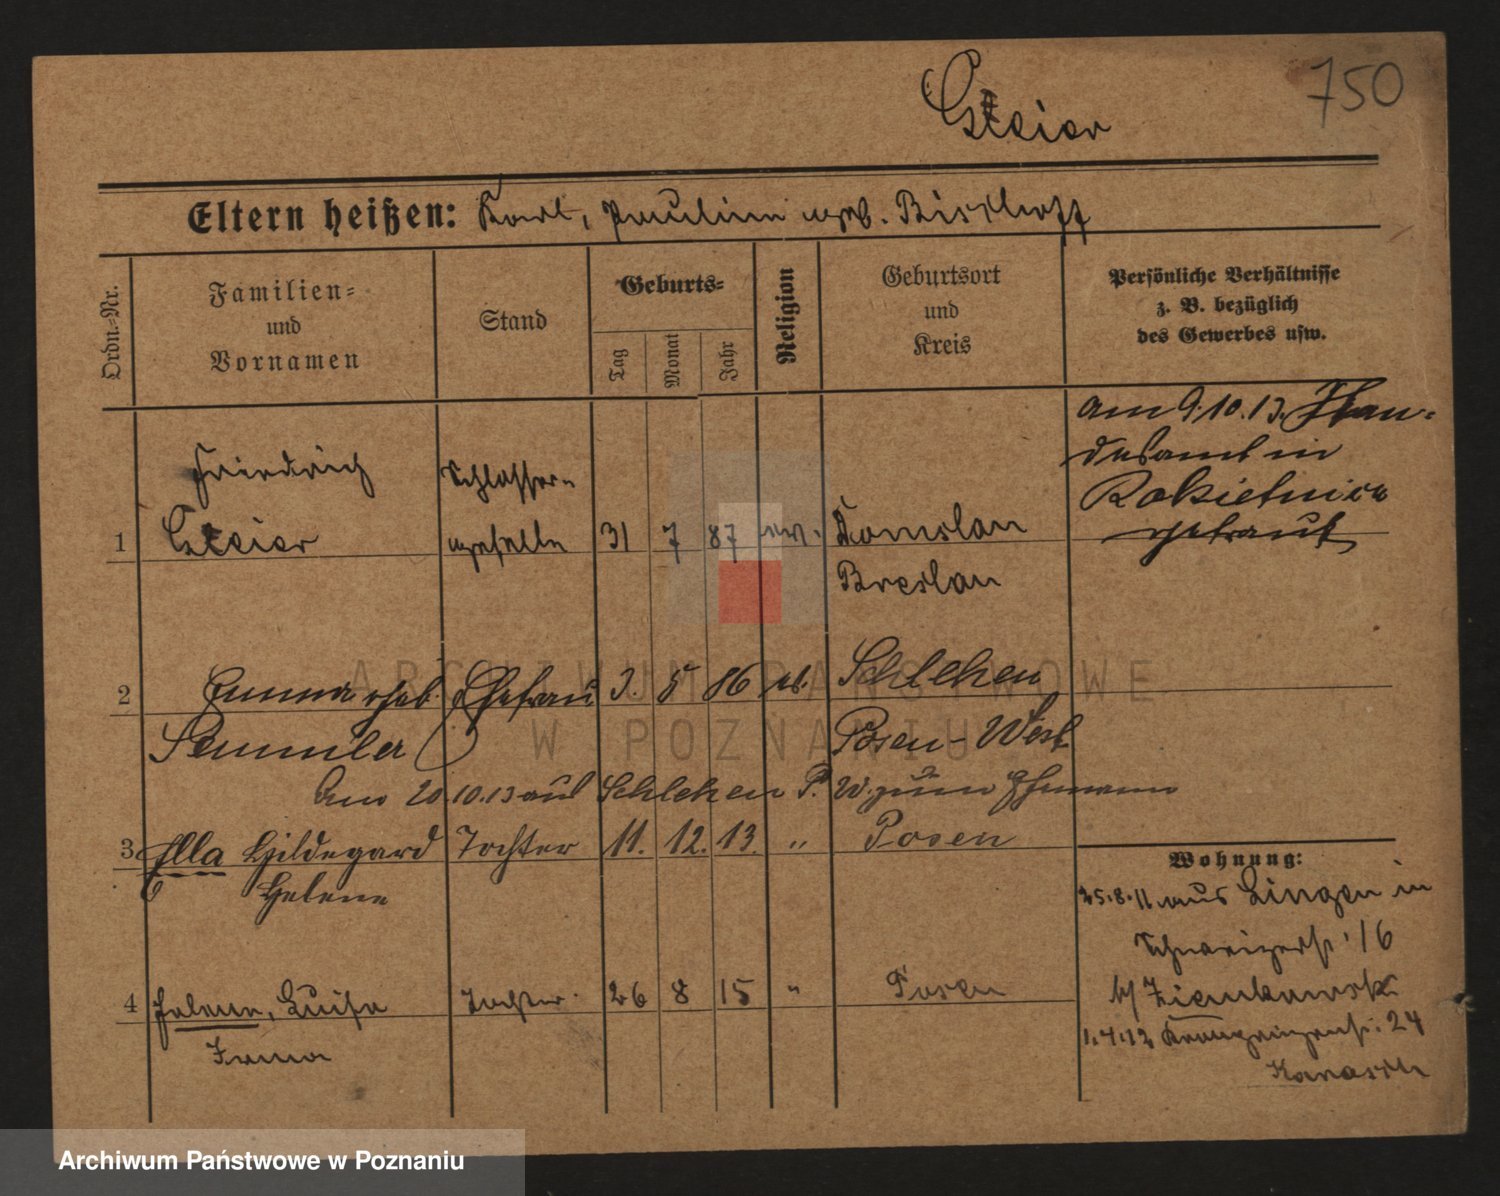 750
Eltern heißen: Karl, Pauline geb. Bischoff
Ordn.-Nr.
Familien-
und
Vornamen
Stand
Geburts-
Tag
Monat
Jahr
Religion
Geburtsort
und
Kreis
Persönliche Verhältnisse
z. B. bezüglich
des Gewerbes usw.
am 9.10.13. Stan-
desamt in
Rokietnica
getraut
Friedrich
Schlosser-
1
geselle 31 7 87 ev.
Breslau
2 Emma geb. Ehefrau 3. 5 86 ev. Schlehen
Semmler Posen-West
Am 20 10.13 aus Schlehen P. W. zum Ehemann
3 Ella Hildegard Tochter 11. 12. 13. " Posen
Helene
Wohnung:
25.8.11 aus Lingen in
16
4 Helene, Luise Tochter. 26 8 15 " Posen
Irma
b/ Zienkowski
1.4.12 Kronprinzenstr. 24
ARCHIWUM PAŃSTWOWE
W POZNANIU
Archiwum Państwowe w Poznaniu